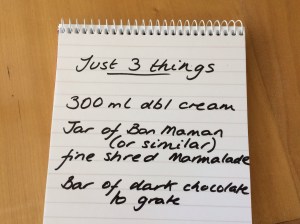 Just 3 things
300 ml dbl cream
Jar of Bon Maman
(or similar)
fine shred Marmalade
Bar of dark chocolate
to grate